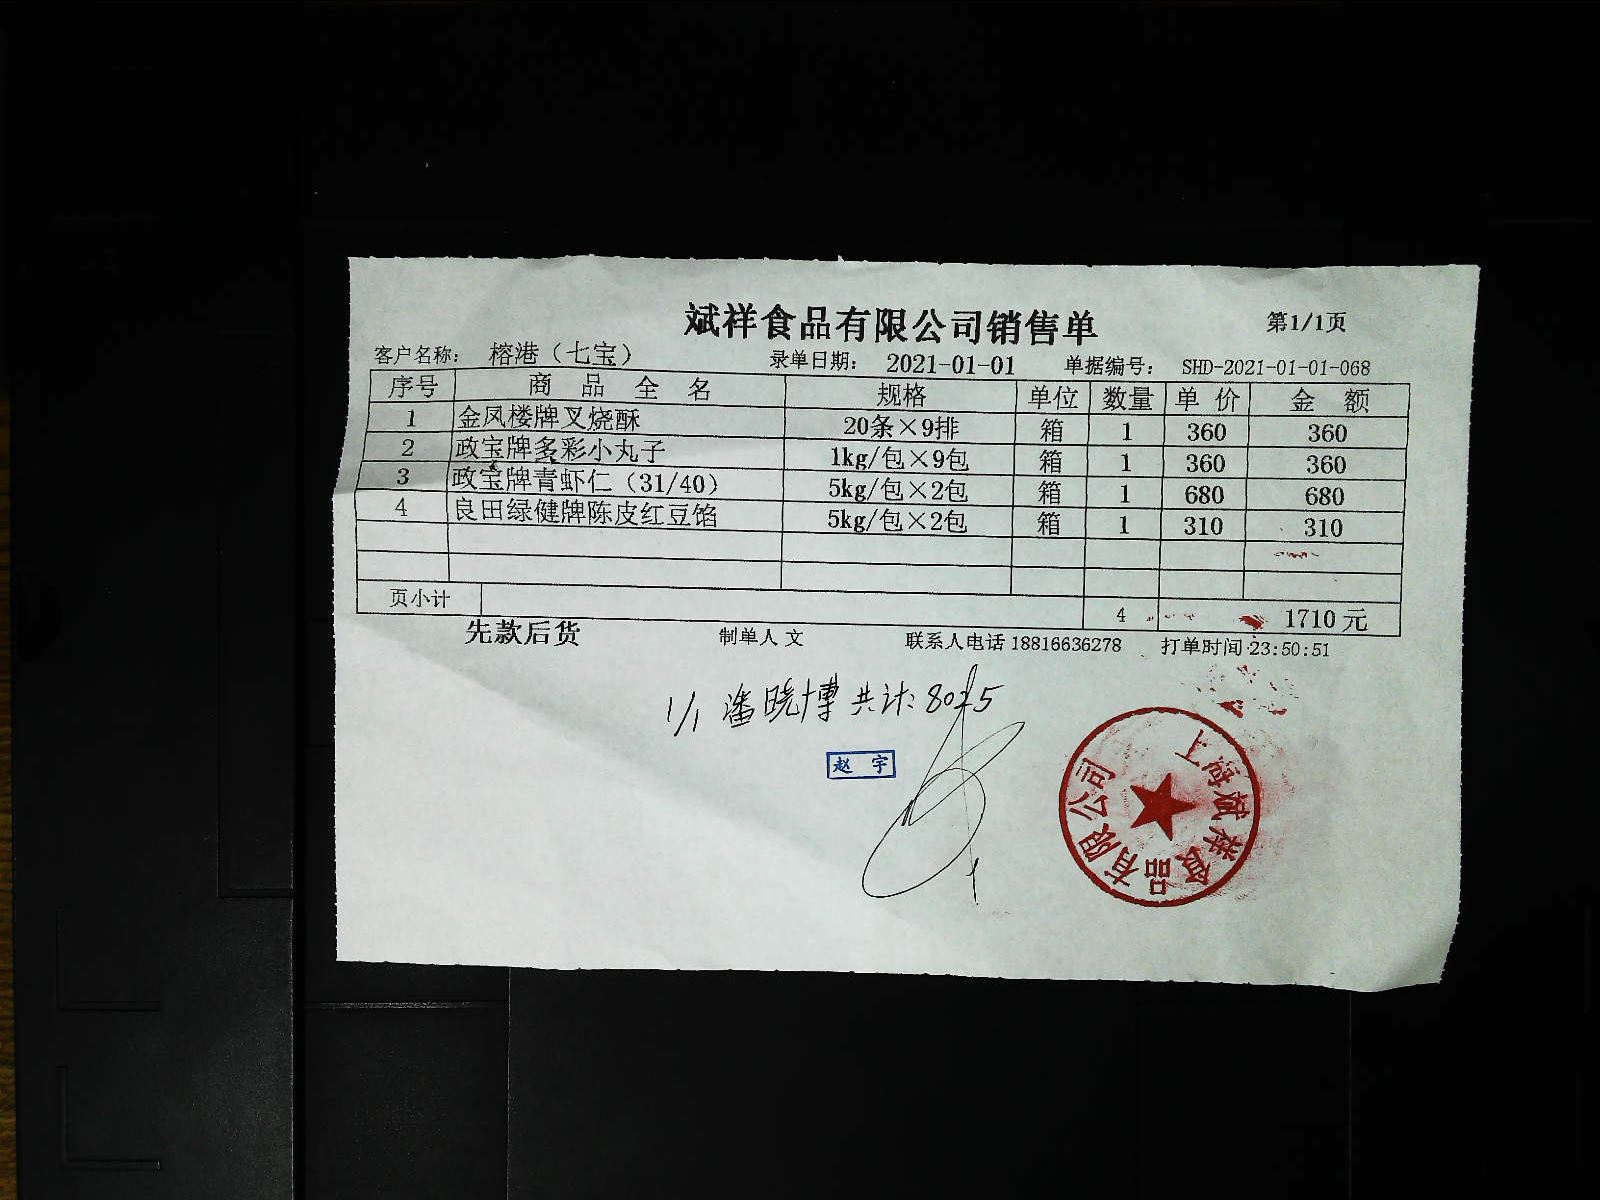 斌祥食品有限公司销售单 第1/1页
客户名称: 榕港（七宝） 录单日期: 2021-01-01 单据编号: SHD-2021-01-01-068
序号 商品全名 规格 单位 数量 单价 金额
1 金凤楼牌叉烧酥 20条×9排 箱 1 360 360
2 政宝牌多彩小丸子 1kg/包×9包 箱 1 360 360
3 政宝牌青虾仁（31/40） 5kg/包×2包 箱 1 680 680
4 良田绿健牌陈皮红豆馅 5kg/包×2包 箱 1 310 310
页小计 4 1710元
先款后货 制单人 文 联系人电话 18816636278 打单时间 23:50:51
1/1 潘晓博 共计: 8025
赵宇
上海斌祥食品有限公司